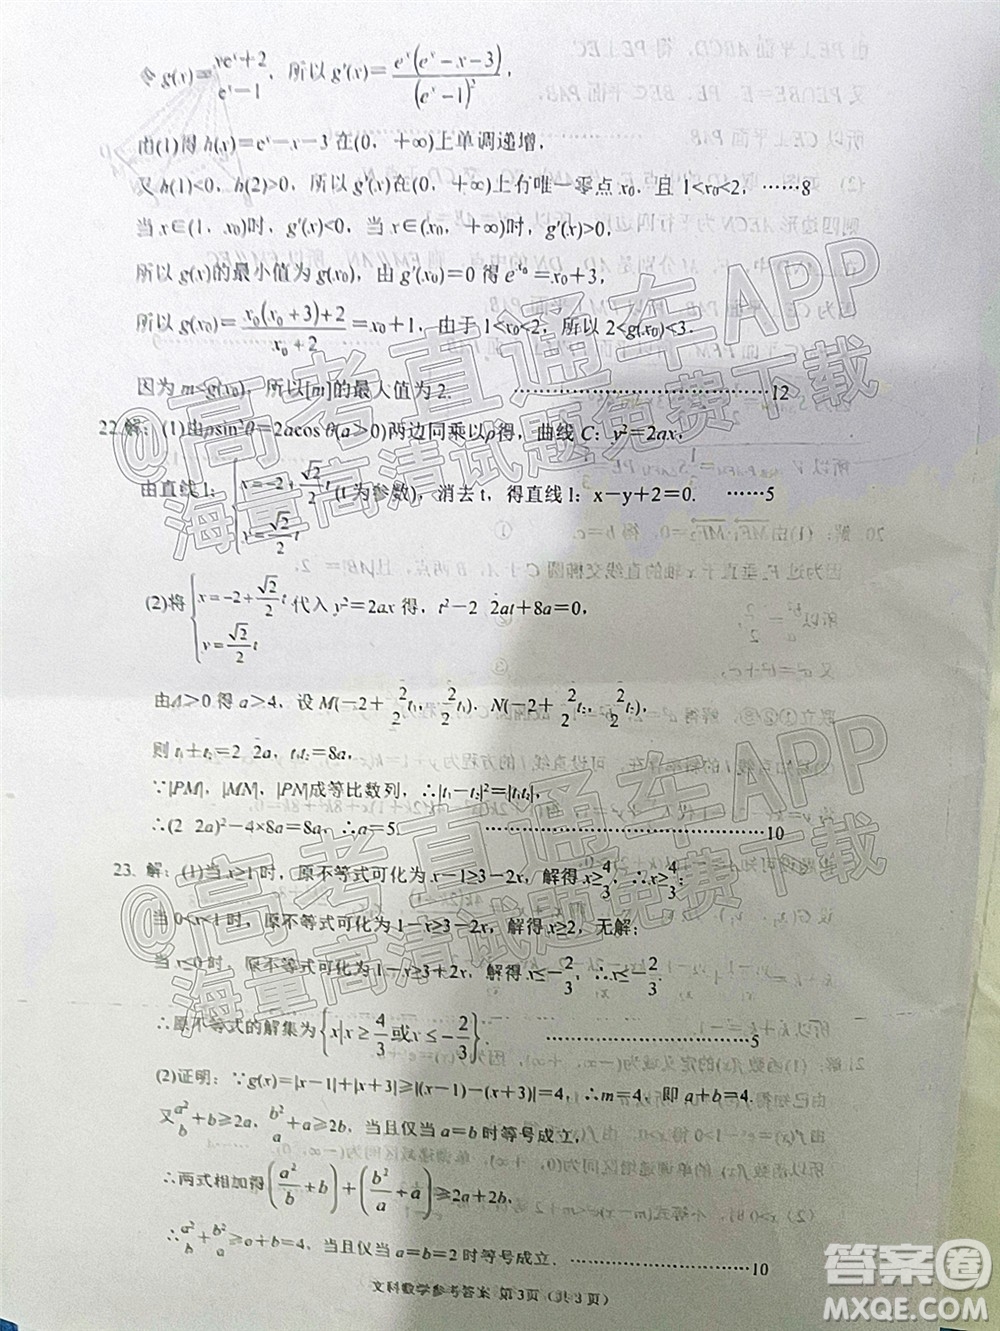 令g(x)=(xeˣ+2)/(eˣ−1)，所以g′(x)=eˣ(eˣ−x−3)/(eˣ−1)²，
由(1)得h(x)=eˣ−x−3在(0，+∞)上单调递增，
又h(1)<0，h(2)>0，所以g′(x)在(0，+∞)上有唯一零点x₀，且1<x₀<2，……8
当x∈(1，x₀)时，g′(x)<0，当x∈(x₀，+∞)时，g′(x)>0，
所以g(x)的最小值为g(x₀)，由g′(x₀)=0得e^x₀=x₀+3，
所以g(x₀)=(x₀(x₀+3)+2)/(x₀+2)=x₀+1，由于1<x₀<2，所以2<g(x₀)<3.
因为m<g(x₀)，所以[m]的最大值为2. ……………………………12
22.解：(1)由ρsin²θ=2acosθ(a>0)两边同乘以ρ得，曲线C：y²=2ax，
由直线l：{x=−2+(√2/2)t，y=(√2/2)t (t为参数)，消去t，得直线l：x−y+2=0. ……5
(2)将{x=−2+(√2/2)t，y=(√2/2)t 代入y²=2ax得，t²−2 2at+8a=0，
由Δ>0得a>4，设M(−2+2/2t₁，2/2t₁)，N(−2+2/2t₂，2/2t₂)，
则t₁+t₂=2 2a，t₁t₂=8a，
∵|PM|，|MN|，|PN|成等比数列，∴|t₁−t₂|²=|t₁t₂|，
∴(2 2a)²−4×8a=8a，∴a=5 ……………………………10
23. 解：(1)当x≥1时，原不等式可化为x−1≥3−2x，解得x≥4/3，∴x≥4/3；
当0<x<1时，原不等式可化为1−x≥3−2x，解得x≥2，无解；
当x≤0时，原不等式可化为1−x≥3+2x，解得x≤−2/3，∴x≤−2/3.
∴原不等式的解集为{x|x≥4/3或x≤−2/3}. ……………………………5
(2)证明：∵g(x)=|x−1|+|x+3|≥|(x−1)−(x+3)|=4，∴m=4，即a+b=4.
又a²/b+b≥2a，b²/a+a≥2b，当且仅当a=b时等号成立，
∴两式相加得(a²/b+b)+(b²/a+a)≥2a+2b，
∴a²/b+b²/a≥a+b=4，当且仅当a=b=2时等号成立. ……………………10
文科数学参考答案 第3页（共3页）
@高考直通车APP
海量高清试题免费下载
@高考直通车APP
海量高清试题免费下载
答案圈
MXQE.COM